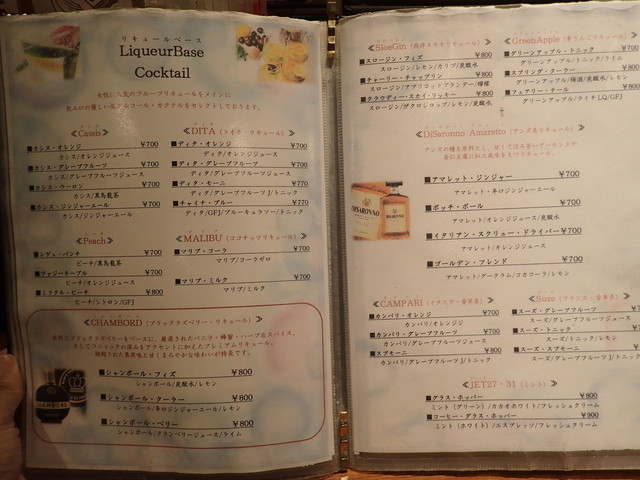 リキュールベース
LiqueurBase
Cocktail
女性に人気のフルーツリキュールをメインに
飲み口の優しい低アルコール・カクテルをセレクトしております。
≪Cassis≫
■カシス・オレンジ ¥700
カシス/オレンジジュース
■カシス・グレープフルーツ ¥700
カシス/グレープフルーツジュース
■カシス・ウーロン ¥700
カシス/黒烏龍茶
■カシス・ジンジャーエール ¥700
カシス/ジンジャーエール
≪DITA (ライチ・リキュール)≫
■ディタ・オレンジ ¥700
ディタ/オレンジジュース
■ディタ・グレープフルーツ ¥700
ディタ/グレープフルーツジュース
■ディタ・モーニ ¥770
ディタ/グレープフルーツJ/トニック
■チャイナ・ブルー ¥770
ディタ/GFJ/ブルーキュラソー/トニック
≪Peach≫
■レゲェ・パンチ ¥700
ピーチ/黒烏龍茶
■ファジーネーブル ¥700
ピーチ/オレンジジュース
■ミツクス・ピーチ ¥800
ピーチ/シトロン/GFJ
≪MALIBU (ココナッツリキュール)≫
■マリブ・コーラ ¥700
マリブ/コーラゼロ
■マリブ・ミルク ¥700
マリブ/ミルク
≪CHAMBORD (ブラックラズベリー・リキュール)≫
■シャンボール・フィズ ¥800
シャンボール/炭酸水/レモン
■シャンボール・クーラー ¥800
シャンボール/辛口ジンジャーエール/レモン
■シャンボール・ベリー ¥800
シャンボール/クランベリージュース/ライム
≪SloeGin (西洋スモモリキュール)≫
■スロージン・フィズ ¥700
スロージン/レモン/カリブ/炭酸水
■チャーリー・チャップリン ¥800
スロージン/アプリコットブランデー/檸檬
■クラウディー・スカイ・リッキー ¥800
スロージン/ザクロシロップ/レモン/炭酸水
≪GreenApple (青りんごリキュール)≫
■グリーンアップル・トニック ¥700
グリーンアップル/トニック/ライム
■スプリング・クーラー
グリーンアップル/梅酒/炭酸水/レモン
■フェアリー・テール
グリーンアップル/ライチLQ/GFJ
≪DiSaronno Amaretto (アンズ系リキュール)≫
アンズの種を原料とし、甘くてほろ苦いアーモンドや
杏仁豆腐に似た風味をもつリキュール。
■アマレット・ジンジャー ¥700
アマレット・辛口ジンジャーエール
■ボッチ・ボール ¥700
アマレット/オレンジジュース/炭酸水
■イタリアン・スクリュー・ドライバー ¥700
アマレット/オレンジジュース
■ゴールデン・フレンド ¥700
アマレット/ダークラム/コカコーラ/レモン
≪CAMPARI (イタリア・薬草系)≫
■カンパリ・オレンジ ¥700
カンパリ/オレンジジ
■カンパリ・グレープフルーツ ¥700
カンパリ/グレープフルーツジュース
■スプモーニ ¥800
カンパリ/グレープフルーツJ/トニック
≪Suze (フランス・薬草系)≫
■スーズ・グレープフルーツ
スーズ/グレープフルーツジュース
■スーズ・トニック
スーズ/トニック/レモン
■スーズ・スプモーニ
スーズ/グレープフルーツJ/トニック
≪JET27・31 (ミント)≫
■グラス・ホッパー ¥900
ミント(グリーン)/カカオホワイト/フレッシュクリーム
■コーヒー・グラス・ホッパー ¥900
ミント(ホワイト)/エスプレッソ/フレッシュクリーム
DISARONNO